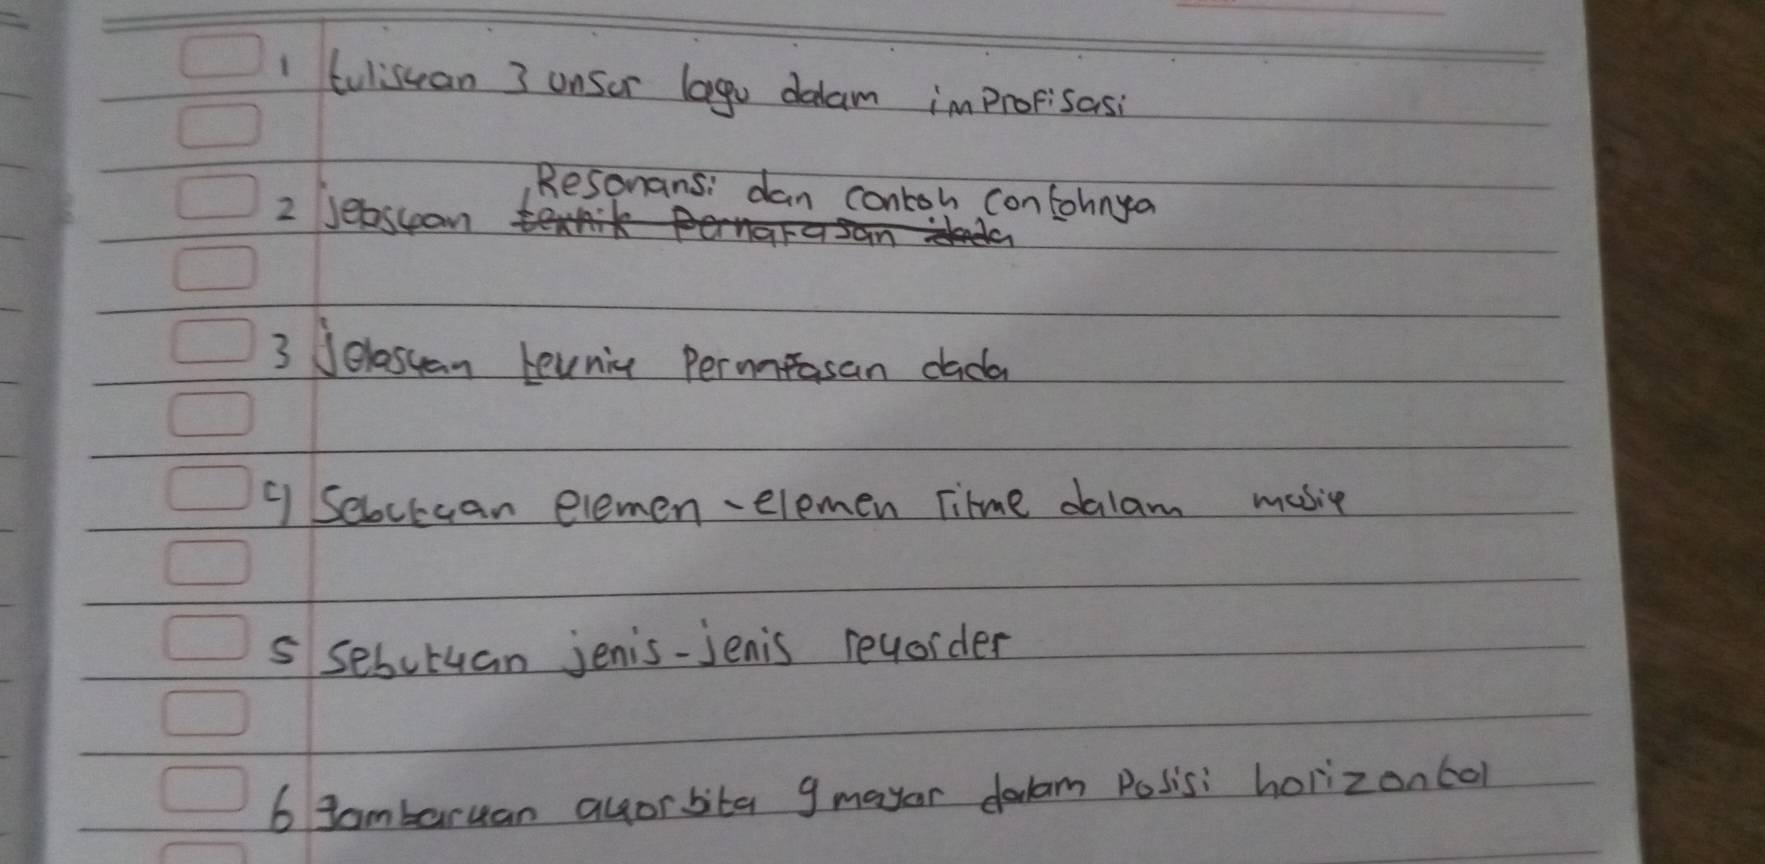 1 tuliskan 3 unsur lagu dalam improfisasi
Resonansi dan contoh contohnya
2 jelaskan teknik pernafasan dada
3 Jelaskan teknik Pernafasan dada
4 Sebutkan elemen-elemen ritme dalam musik
5 Sebutkan jenis-jenis rekorder
6 gambarkan akor bita g mayor dalam posisi horizontal